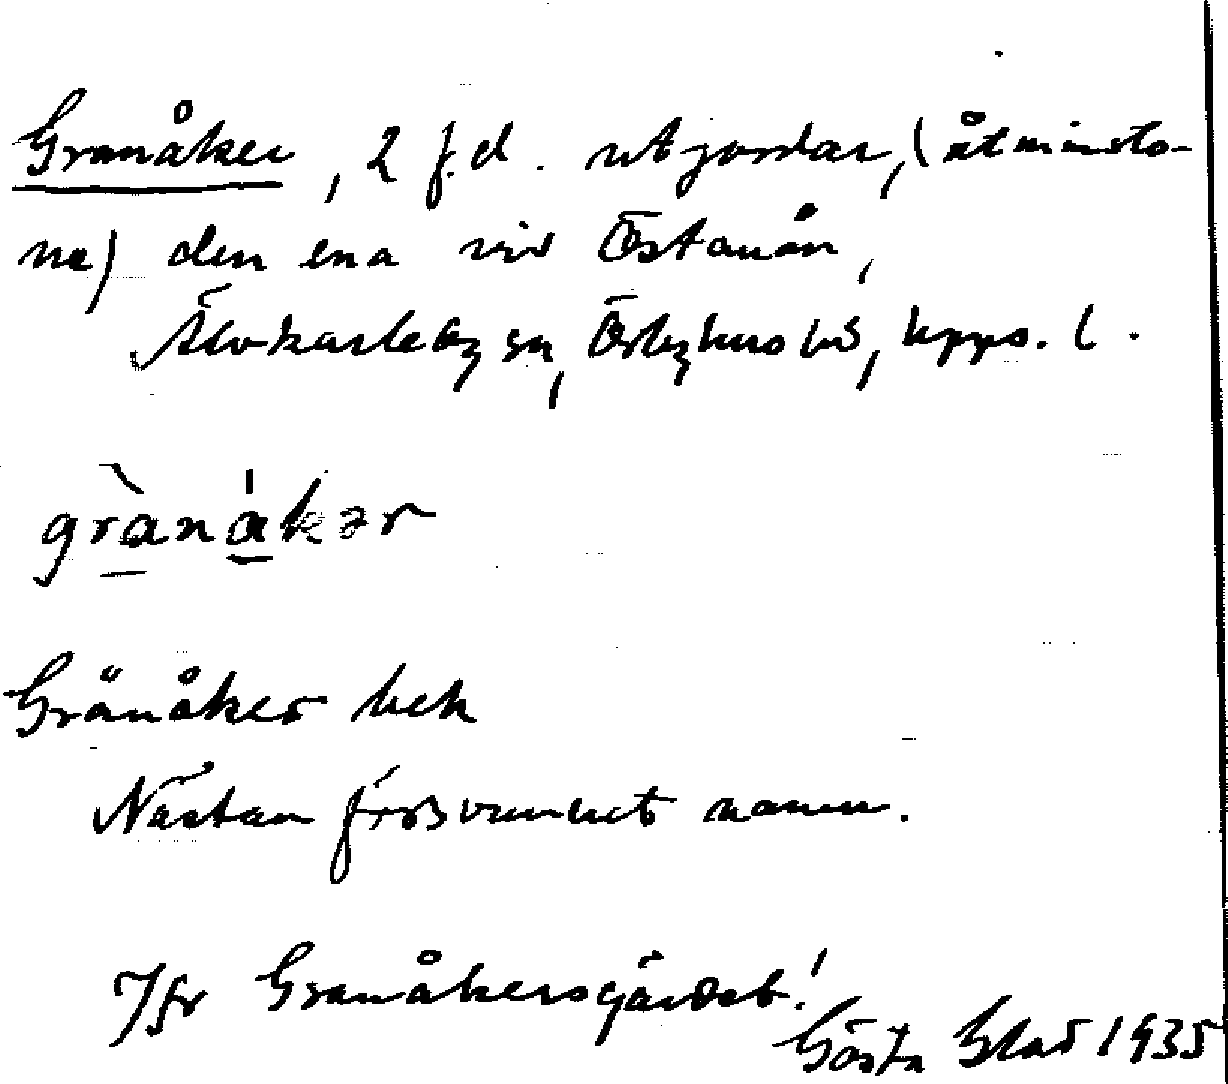 Granåker, 2 f.d. utjordar, (åtminsto-
ne) den ena vid Östanån,
Älvkarleby sn, Örbyhus hd, Upps. l.
grànákər
Gränåker bek
Nästan försvunnet namn.
Jfr Granåkersgärdet!
Gösta Blad 1935